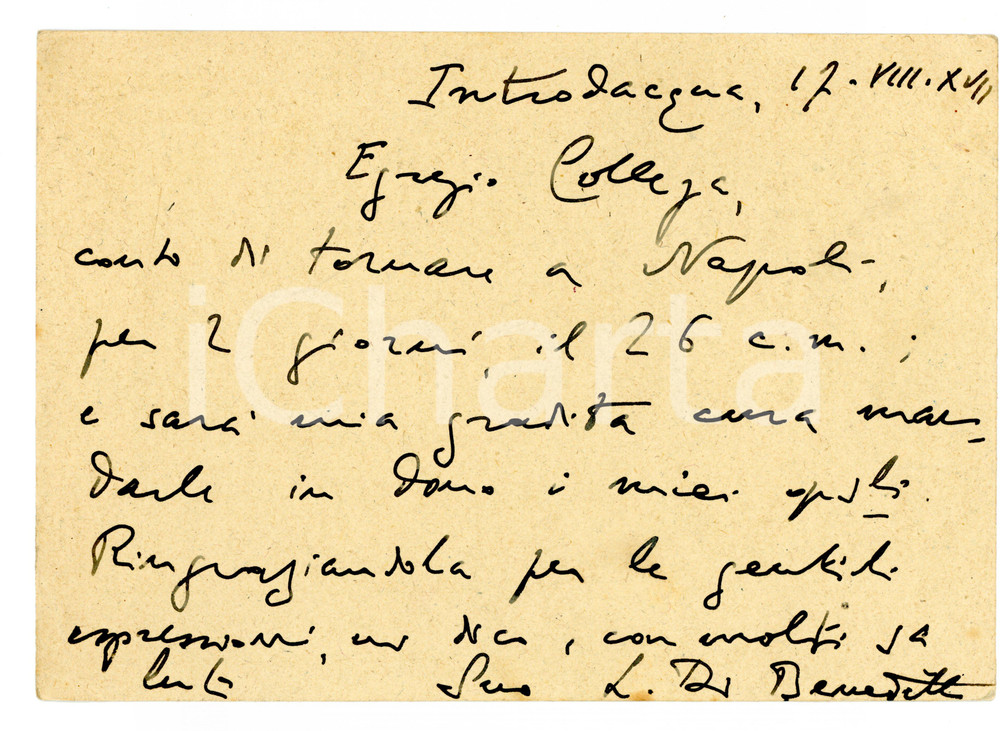 Introdacqua, 17. VIII. XVII
Egregio Collega,
conto di tornare a Napoli,
per 2 giorni, il 26 c.m.;
e sarà mia gradita cura man-
darle in dono i miei opsli.
Ringraziandola per le gentili
espressioni, mi dico, con molti sa
luti
Suo L. Di Benedetto
iCharta